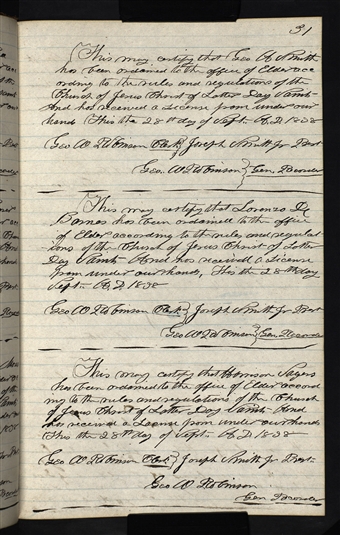 31
This may certify that Geo A Smith
has been ordained to the office of Elder acc
ording to the rules and regulations of the
Church of Jesus Christ of Latter Day Saints
And has received a License from under our
hands This the 28th day of Sept. A.D. 1838
Geo W Robinson Clerk } Joseph Smith Jr Prest
Geo. W Robinson } Gen. Recorder
This may certify that Lorenzo D
Barnes has been ordained to the office
of Elder according to the rules and regulat
ions of the Church of Jesus Christ of Latter
Day Saints And has received a License
from under our hands, This the 28th day
Sept A.D 1838
Geo W Robinson Clerk } Joseph Smith Jr Prest
Geo W Robinson } Gen Recorder
This may certify that Harmon Sagers
has been ordained to the office of Elder accord
ing to the rules and regulations of the Church
of Jesus Christ of Latter Day Saints And
has received a License from under our hands
This the 28th day of Sept A.D. 1838
Geo W Robinson Clerk } Joseph Smith Jr Prest
Geo W Robinson
Gen Recorder